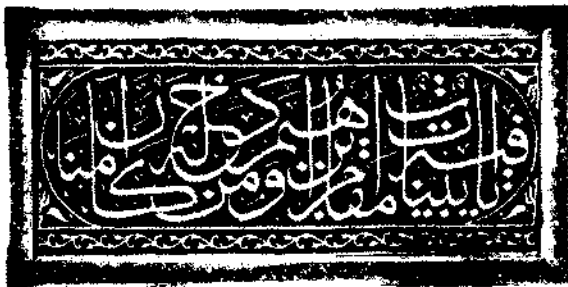 فيه آيات بينات مقام إبرهيم ومن دخله كان آمنا